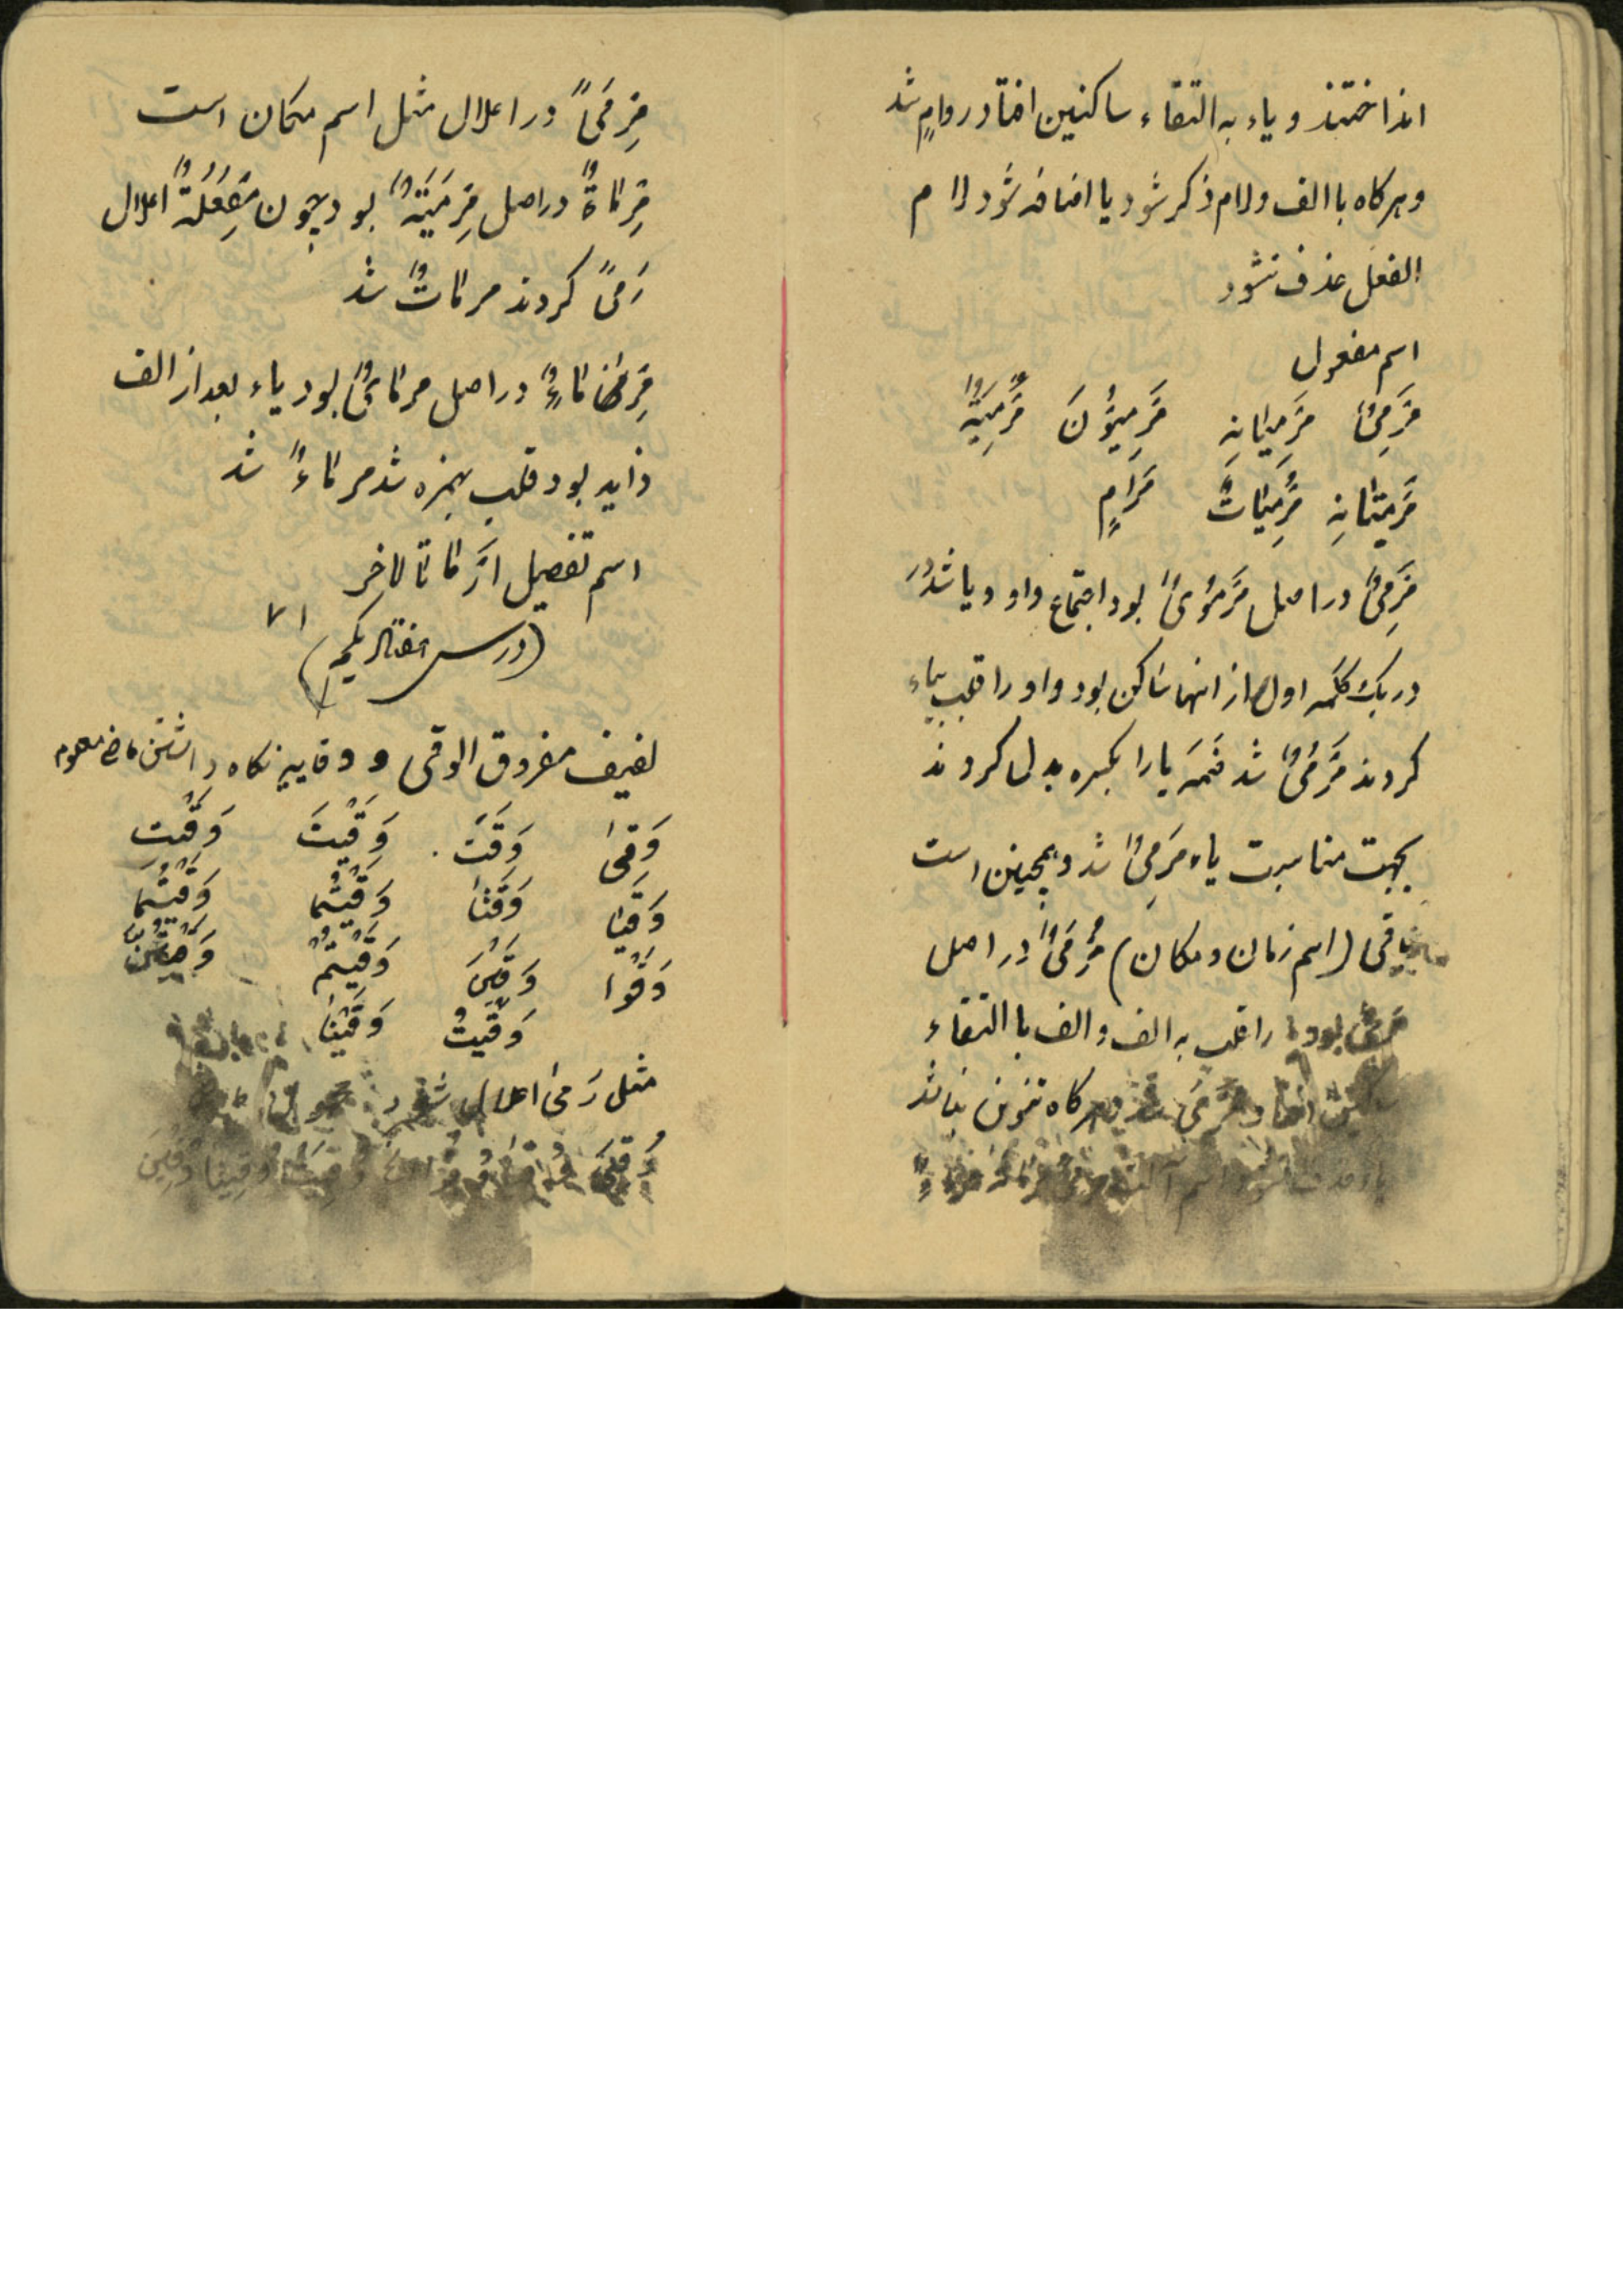 انداختند و یاء به التقاء ساکنین افتاد رامٍ شد
و هرکاه با الف و لام ذکر شود یا اضافه شود لام
الفعل حذف نشود
اسم مفعول
مَرْمِیٌّ مَرْمِیّانِ مَرْمِیُّونَ مَرْمِیَّةٌ
مَرْمِیَّتانِ مَرْمِیّاتٌ مَرامٍ
مَرْمِیٌّ در اصل مَرْمُویٌ بود اجتماع واو و یا شد
در یک کلمه اول از انها ساکن بود واو را قلب بیاء
کردند مَرْمُیٌّ شد ضمه یا را بکسره بدل کردند
بجهت مناسبت یاء مَرْمِیٌّ شد و همچنین است
باقی (اسم زمان و مکان) مَرْمیً در اصل
بود را قلب به الف و الف با التقاء
هرکاه تنوین نباشد
مِرْمیً در اعلال مثل اسم مکان است
مِرْماةٌ در اصل مِرْمَیَةٌ بود چون مِفْعَلَةٌ اعلال
رَمیً کردند مرماتٌ شد
مِرْماءٌ در اصل مرمایٌ بود یاء بعد از الف
زاید بود قلب بهمزه شد مرماءٌ شد
اسم تفصیل
(درس هفتاد یکم) ۷۱
لفیف مفروق الوقی و وقایه نکاه داشتن ماضی معلوم
وَقیٰ وَقَتْ وَقَیْتَ وَقَیْتِ
وَقَیا وَقَتا وَقَیْتُما وَقَیْتُما
وَقَوْا وَقَیْنَ وَقَیْتُمْ وَقَیْتُنَّ
وَقَیْتُ وَقَیْنا
مثل رَمیٰ اعلال
وُقِیَ وُقِینا